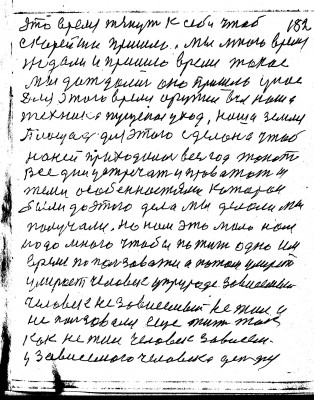 это время тянут к себи чтоб 182
скорей он пришол. Мы много время
ждали и пришло время такое
мы дождалис оно пришло у нас
Для этого время оружия вся наша
техника пущена у ход, наша земля
площад для этого сделана чтоб
на ней приходилос весь год топтат
Все дни устречат и провожат и
теми особенностями которои
были до этого дела мы делали мы
получали. Но нам это мало нам
надо много чтобы пожит одно им
время попользоватся а потом умерет
умирает человек у природе зависемыи
человек независемыи не жил и
не пользовался еще жит так
как не жил человек зависем.
у зависемого человека